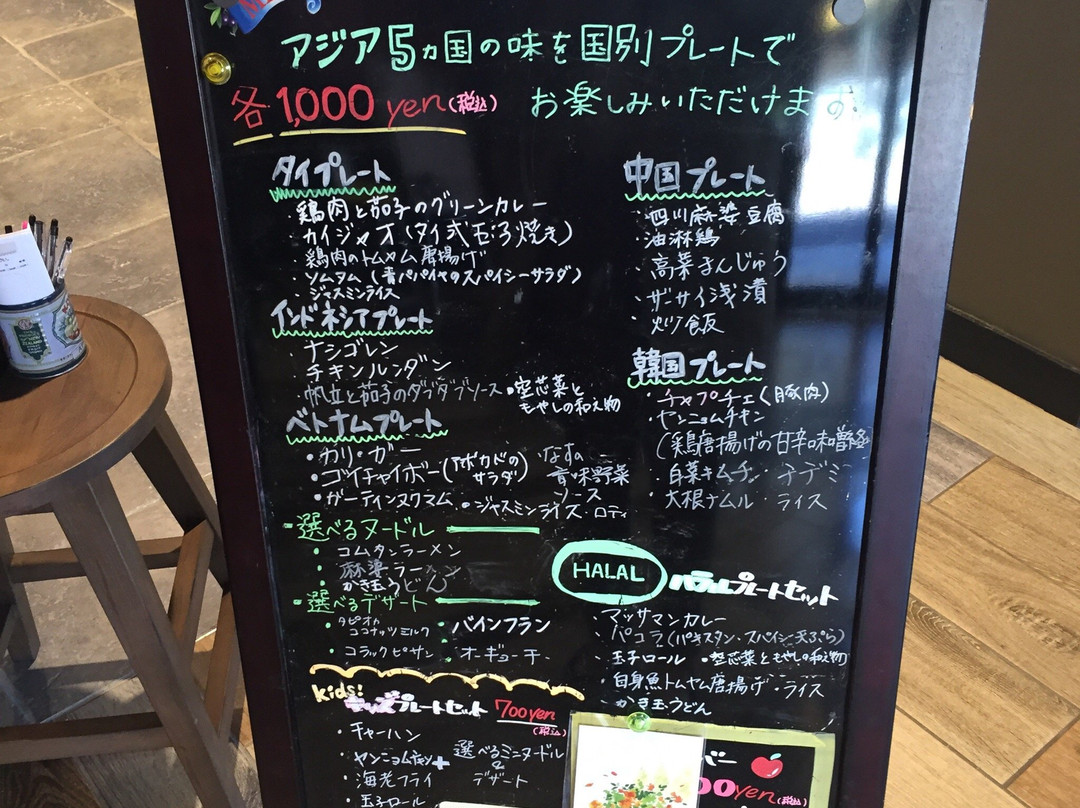 アジア5ヵ国の味を国別プレートで
各1,000yen(税込) お楽しみいただけます
タイプレート
・鶏肉と茄子のグリーンカレー
・カイジャオ(タイ式玉子焼き)
・鶏肉のトムヤム唐揚げ
・ソムタム(青パパイヤのスパイシーサラダ)
・ジャスミンライス
インドネシアプレート
・ナシゴレン
・チキンルンダン
・帆立と茄子のダブダブソース ・空芯菜と
もやしの和え物
ベトナムプレート
・カリ・ガー
・ゴイチャイボー(アボカドの
サラダ)
・ガーティンヌクマム ・ジャスミンライス・ロティ
なすの
香味野菜
ソース
・選べるヌードル
・コムタンラーメン
・麻婆ラーメン
・かき玉うどん
・選べるデザート
・タピオカ
ココナッツミルク
・バインフラン
・コラックピサン
・オーギョーチ
中国プレート
・四川麻婆豆腐
・油淋鶏
・高菜まんじゅう
・ザーサイ浅漬
・炒飯
韓国プレート
・チャプチェ(豚肉)
・ヤンニョムチキン
(鶏唐揚げの甘辛味噌
・白菜キムチ・チヂミ
・大根ナムル・ライス
HALAL ハラルプレートセット
・マッサマンカレー
・パコラ(パキスタン・スパイシー天ぷら)
・玉子ロール ・空芯菜ともやしの和え物
・白身魚トムヤム唐揚げ・ライス
・かき玉うどん
kids!
キッズプレートセット 700yen
(税込)
・チャーハン
・ヤンニョムチキン
・海老フライ
・玉子ロール
+
選べるミニヌードル
&
デザート
バー
00yen(税込)